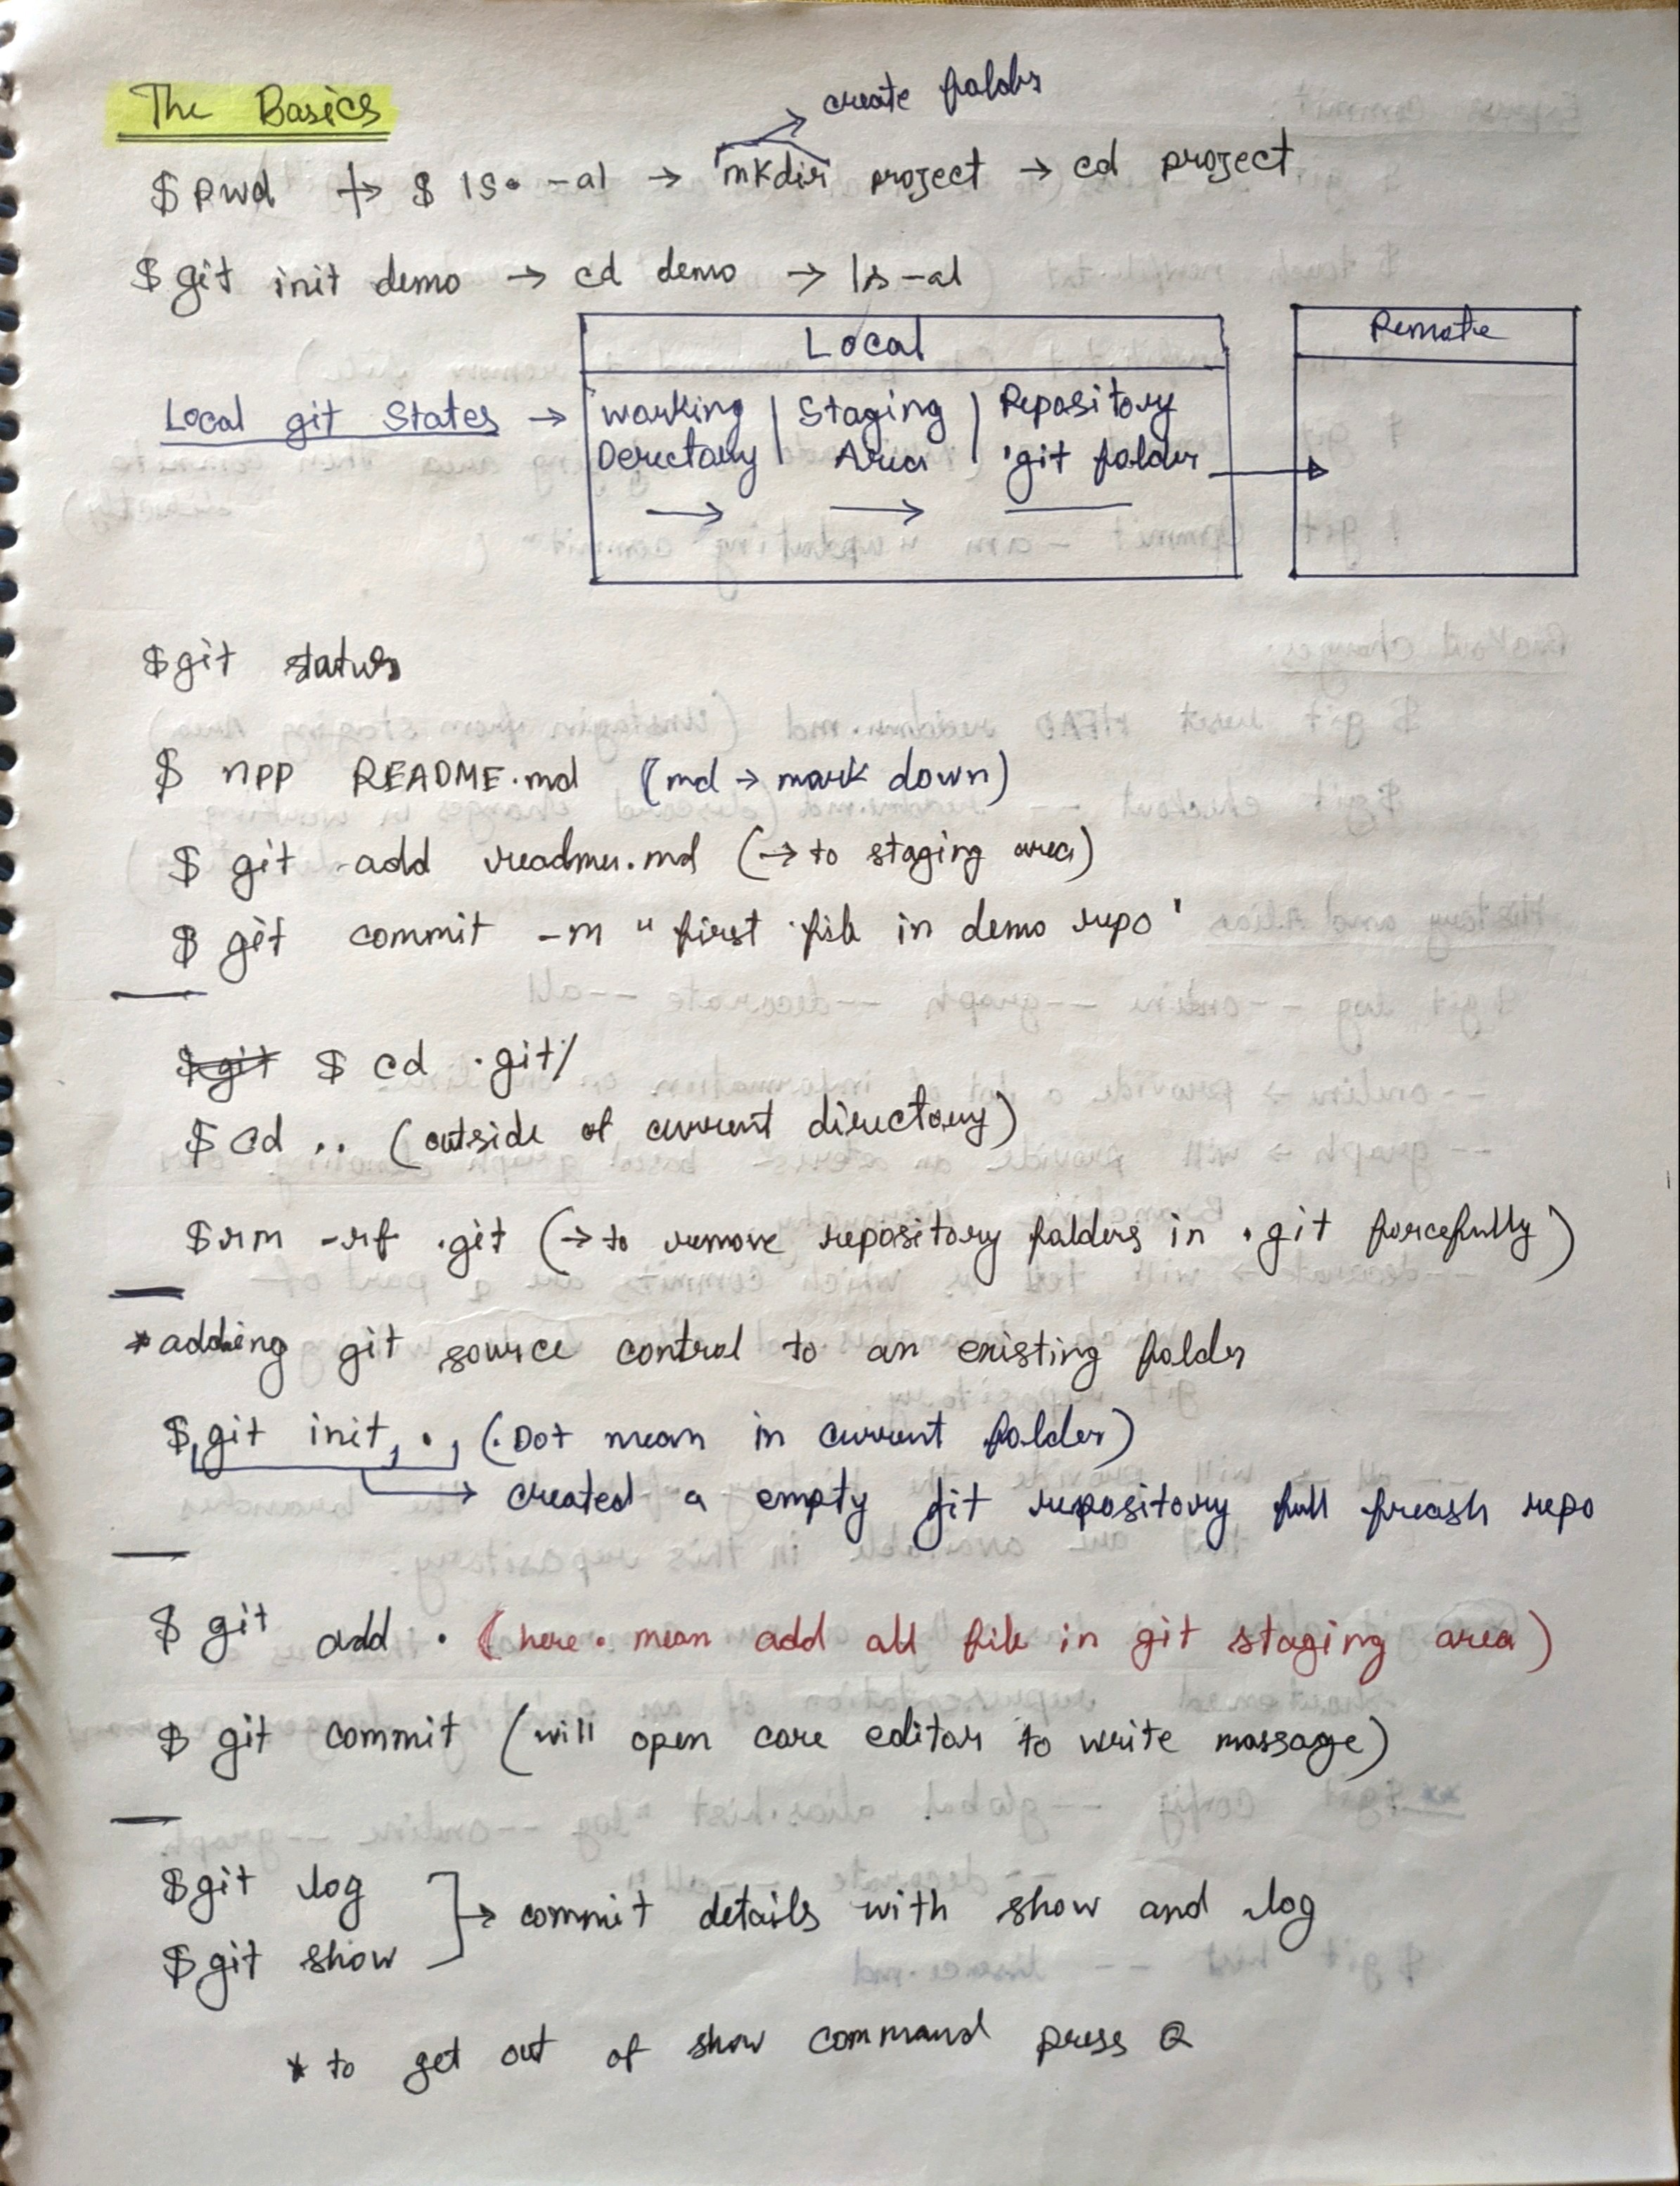 The Basics
create folder
$ pwd → $ ls. -al → mkdir project → cd project
$ git init demo → cd demo → ls -al
Local
Remote
Local git States →
working Derectory | Staging Area | Repository .git folder
$git status
$ npp README.md (md → mark down)
$ git add readme.md (→ to staging area)
$ git commit -m "first file in demo repo'
$git $ cd .git/
$ cd .. (outside of current directory)
$ rm -rf .git (→ to remove repository folders in .git forcefully)
* adding git source control to an existing folder
$ git init . (. Dot mean in current folder)
→ created a empty git repository full freash repo
$ git add . (here . mean add all file in git staging area)
$ git commit (will open core editor to write massage)
$git log
$git show
→ commit details with show and log
* to get out of show command press Q